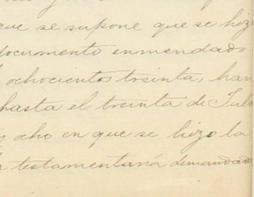 que se supone que se hizo
documento enmendado
ochocientos treinta, han
hasta el treinta de Jul
y ocho en que se hizo la
testamentaría demandad